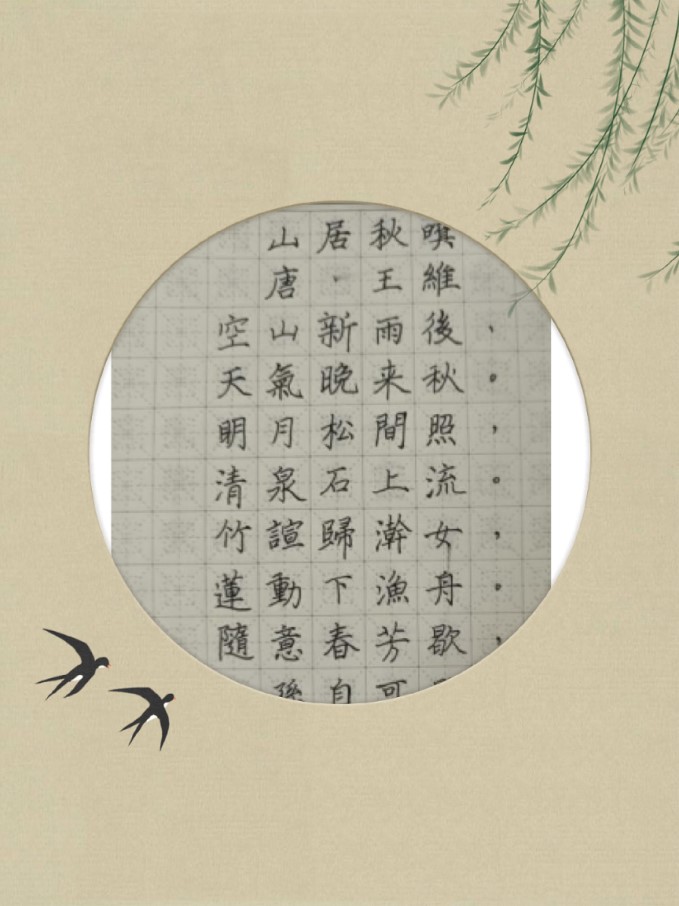 山居秋暝
唐·王維
空山新雨後，
天氣晚来秋。
明月松間照，
清泉石上流。
竹諠歸澣女，
蓮動下漁舟。
隨意春芳歇，
孫自可